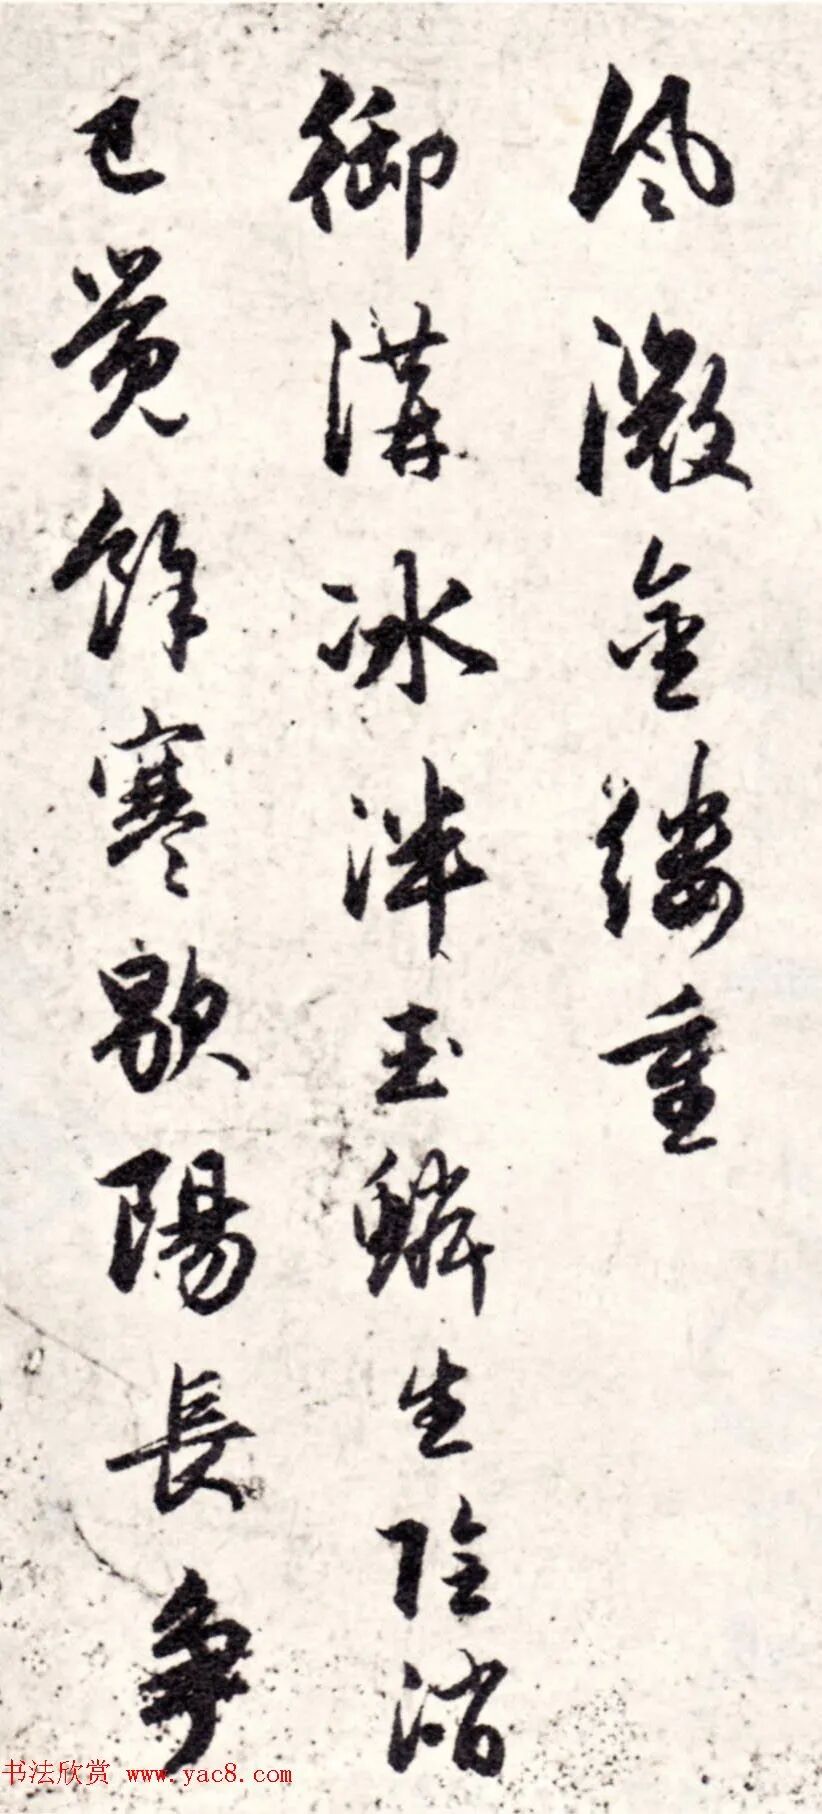 风激金缕重
御溝冰泮玉鳞生陰消
已覺餘寒歇陽長争
书法欣赏 www.yac8.com